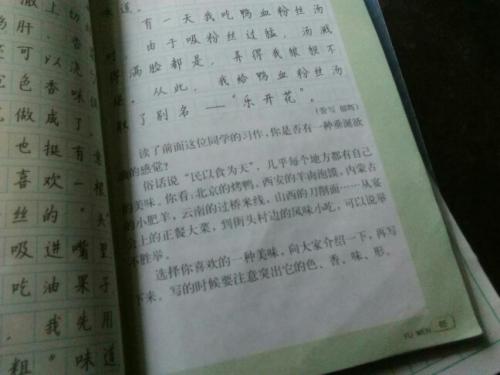 激上切
鸡肝，香
还可以浇
色香味
做成了
也挺有意
喜欢一根
丝的"头
吸进嘴里
吃油果子
，我先用
粗"味道
道。
有一天我吃鸭血粉丝汤
由于吸粉丝过猛，汤溅
得满脸都是，弄得我狼狈不
堪。从此，我给鸭血粉丝汤
取了别名——"乐开花"。
读了前面这位同学的习作，你是否有一种垂涎欲
滴的感觉？
俗话说"民以食为天"，几乎每个地方都有自己
的美味。你看：北京的烤鸭，西安的羊肉泡馍，内蒙古
的小肥羊，云南的过桥米线，山西的刀削面……从宴
会上的正餐大菜，到街头村边的风味小吃，可以说举
不胜举。
选择你喜欢的一种美味，向大家介绍一下，再写
下来。写的时候要注意突出它的色、香、味、形。
YU WEN